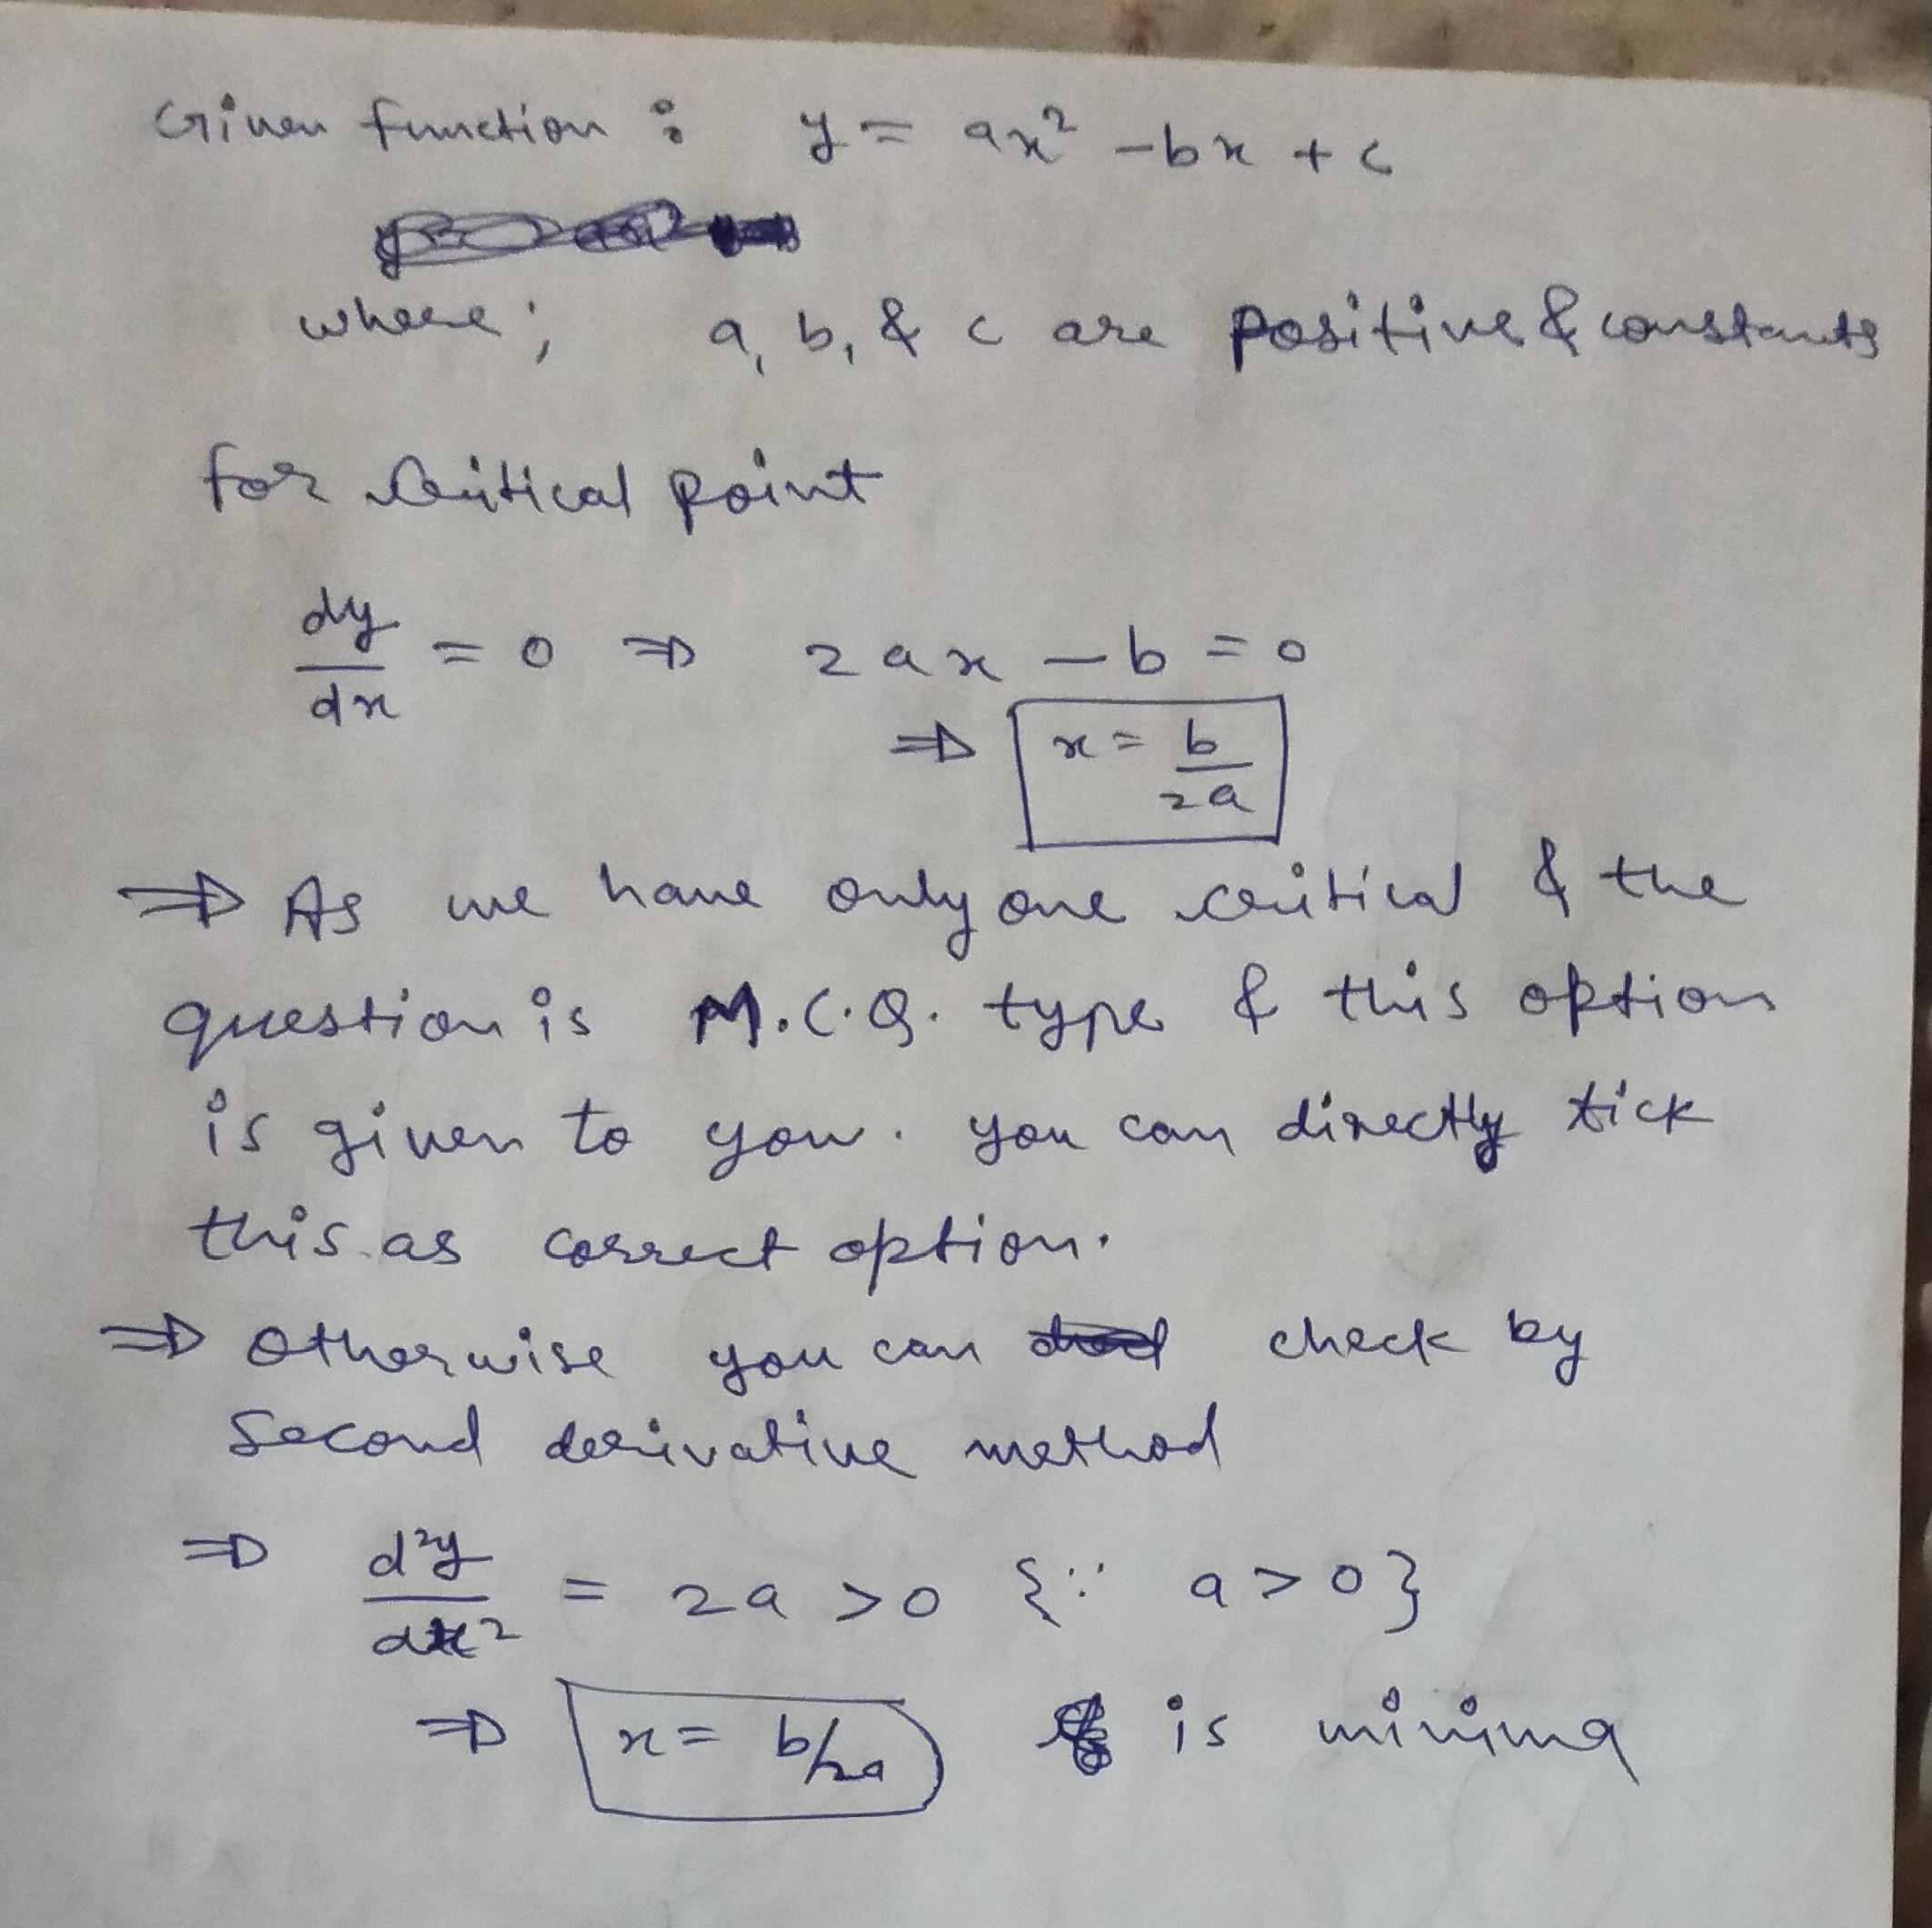 Given function : y = ax² - bx + c
where ; a, b, & c are positive & constants
for critical point
dy/dx = 0 ⇒ 2ax - b = 0
⇒ x = b/2a
⇒ As we have only one critical & the
question is M.C.Q. type & this option
is given to you. you can directly tick
this as correct option.
⇒ Otherwise you can check by
Second derivative method
⇒ d²y/dx² = 2a > 0 {∵ a > 0}
⇒ x = b/2a is minima